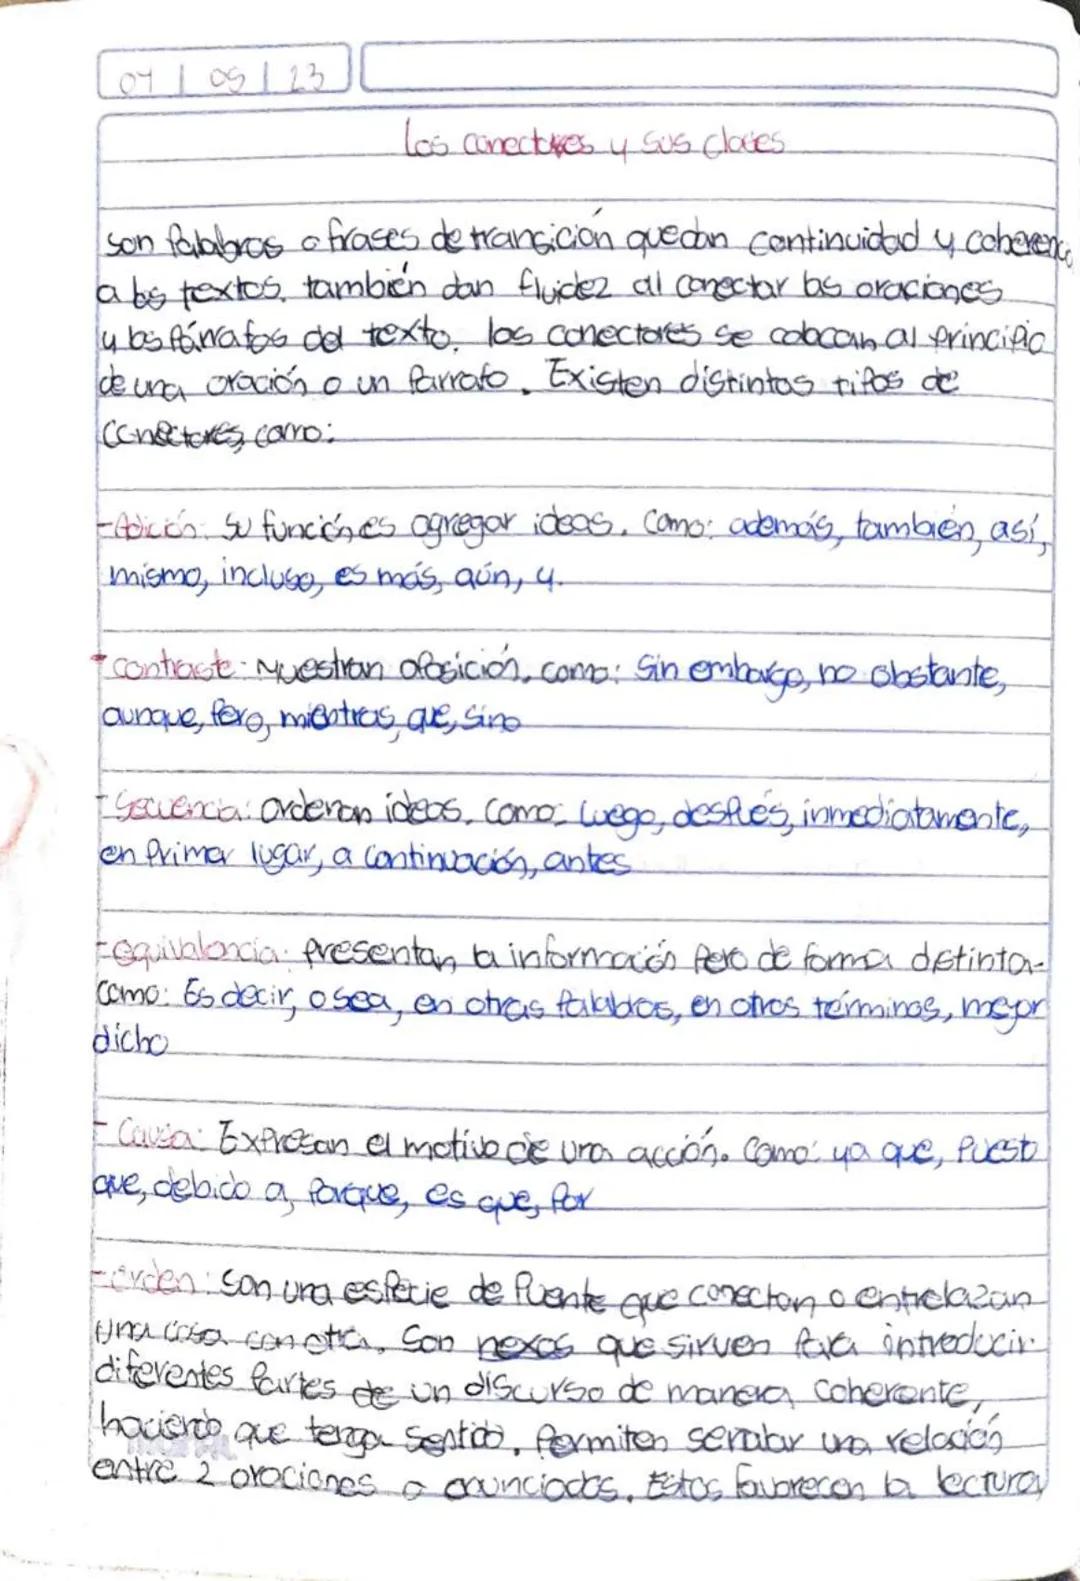 04 | 05 | 23
Los conectores y sus clases
son palabras o frases de transición que dan continuidad y coherencia
a los textos. también dan fluidez al conectar las oraciones
y los párrafos del texto. los conectores se colocan al principio
de una oración o un Parrafo. Existen distintos tipos de
conectores, como:
-Adición: Su función es agregar ideas. Como: además, también, así,
mismo, incluso, es más, aún, y.
-contraste: Muestran oposición, como: Sin embargo, no obstante,
aunque, pero, mientras, que, sino
-Secuencia: Ordenan ideas. Como: luego, después, inmediatamente,
en Primer lugar, a continuación, antes
-equivalencia: Presentan, la información pero de forma distinta-
Como: Es decir, o sea, en otras palabras, en otros términos, mejor
dicho
- Causa: Expresan el motivo de una acción. Como: ya que, Puesto
que, debido a, Porque, es que, Por
-orden: Son una especie de Puente que conectan o entrelazan
una cosa con otra. Son nexos que sirven Para introducir
diferentes Partes de un discurso de manera coherente,
haciendo que tenga sentido. Permiten señalar una relación
entre 2 oraciones o anunciados. Estos favorecen la lectura